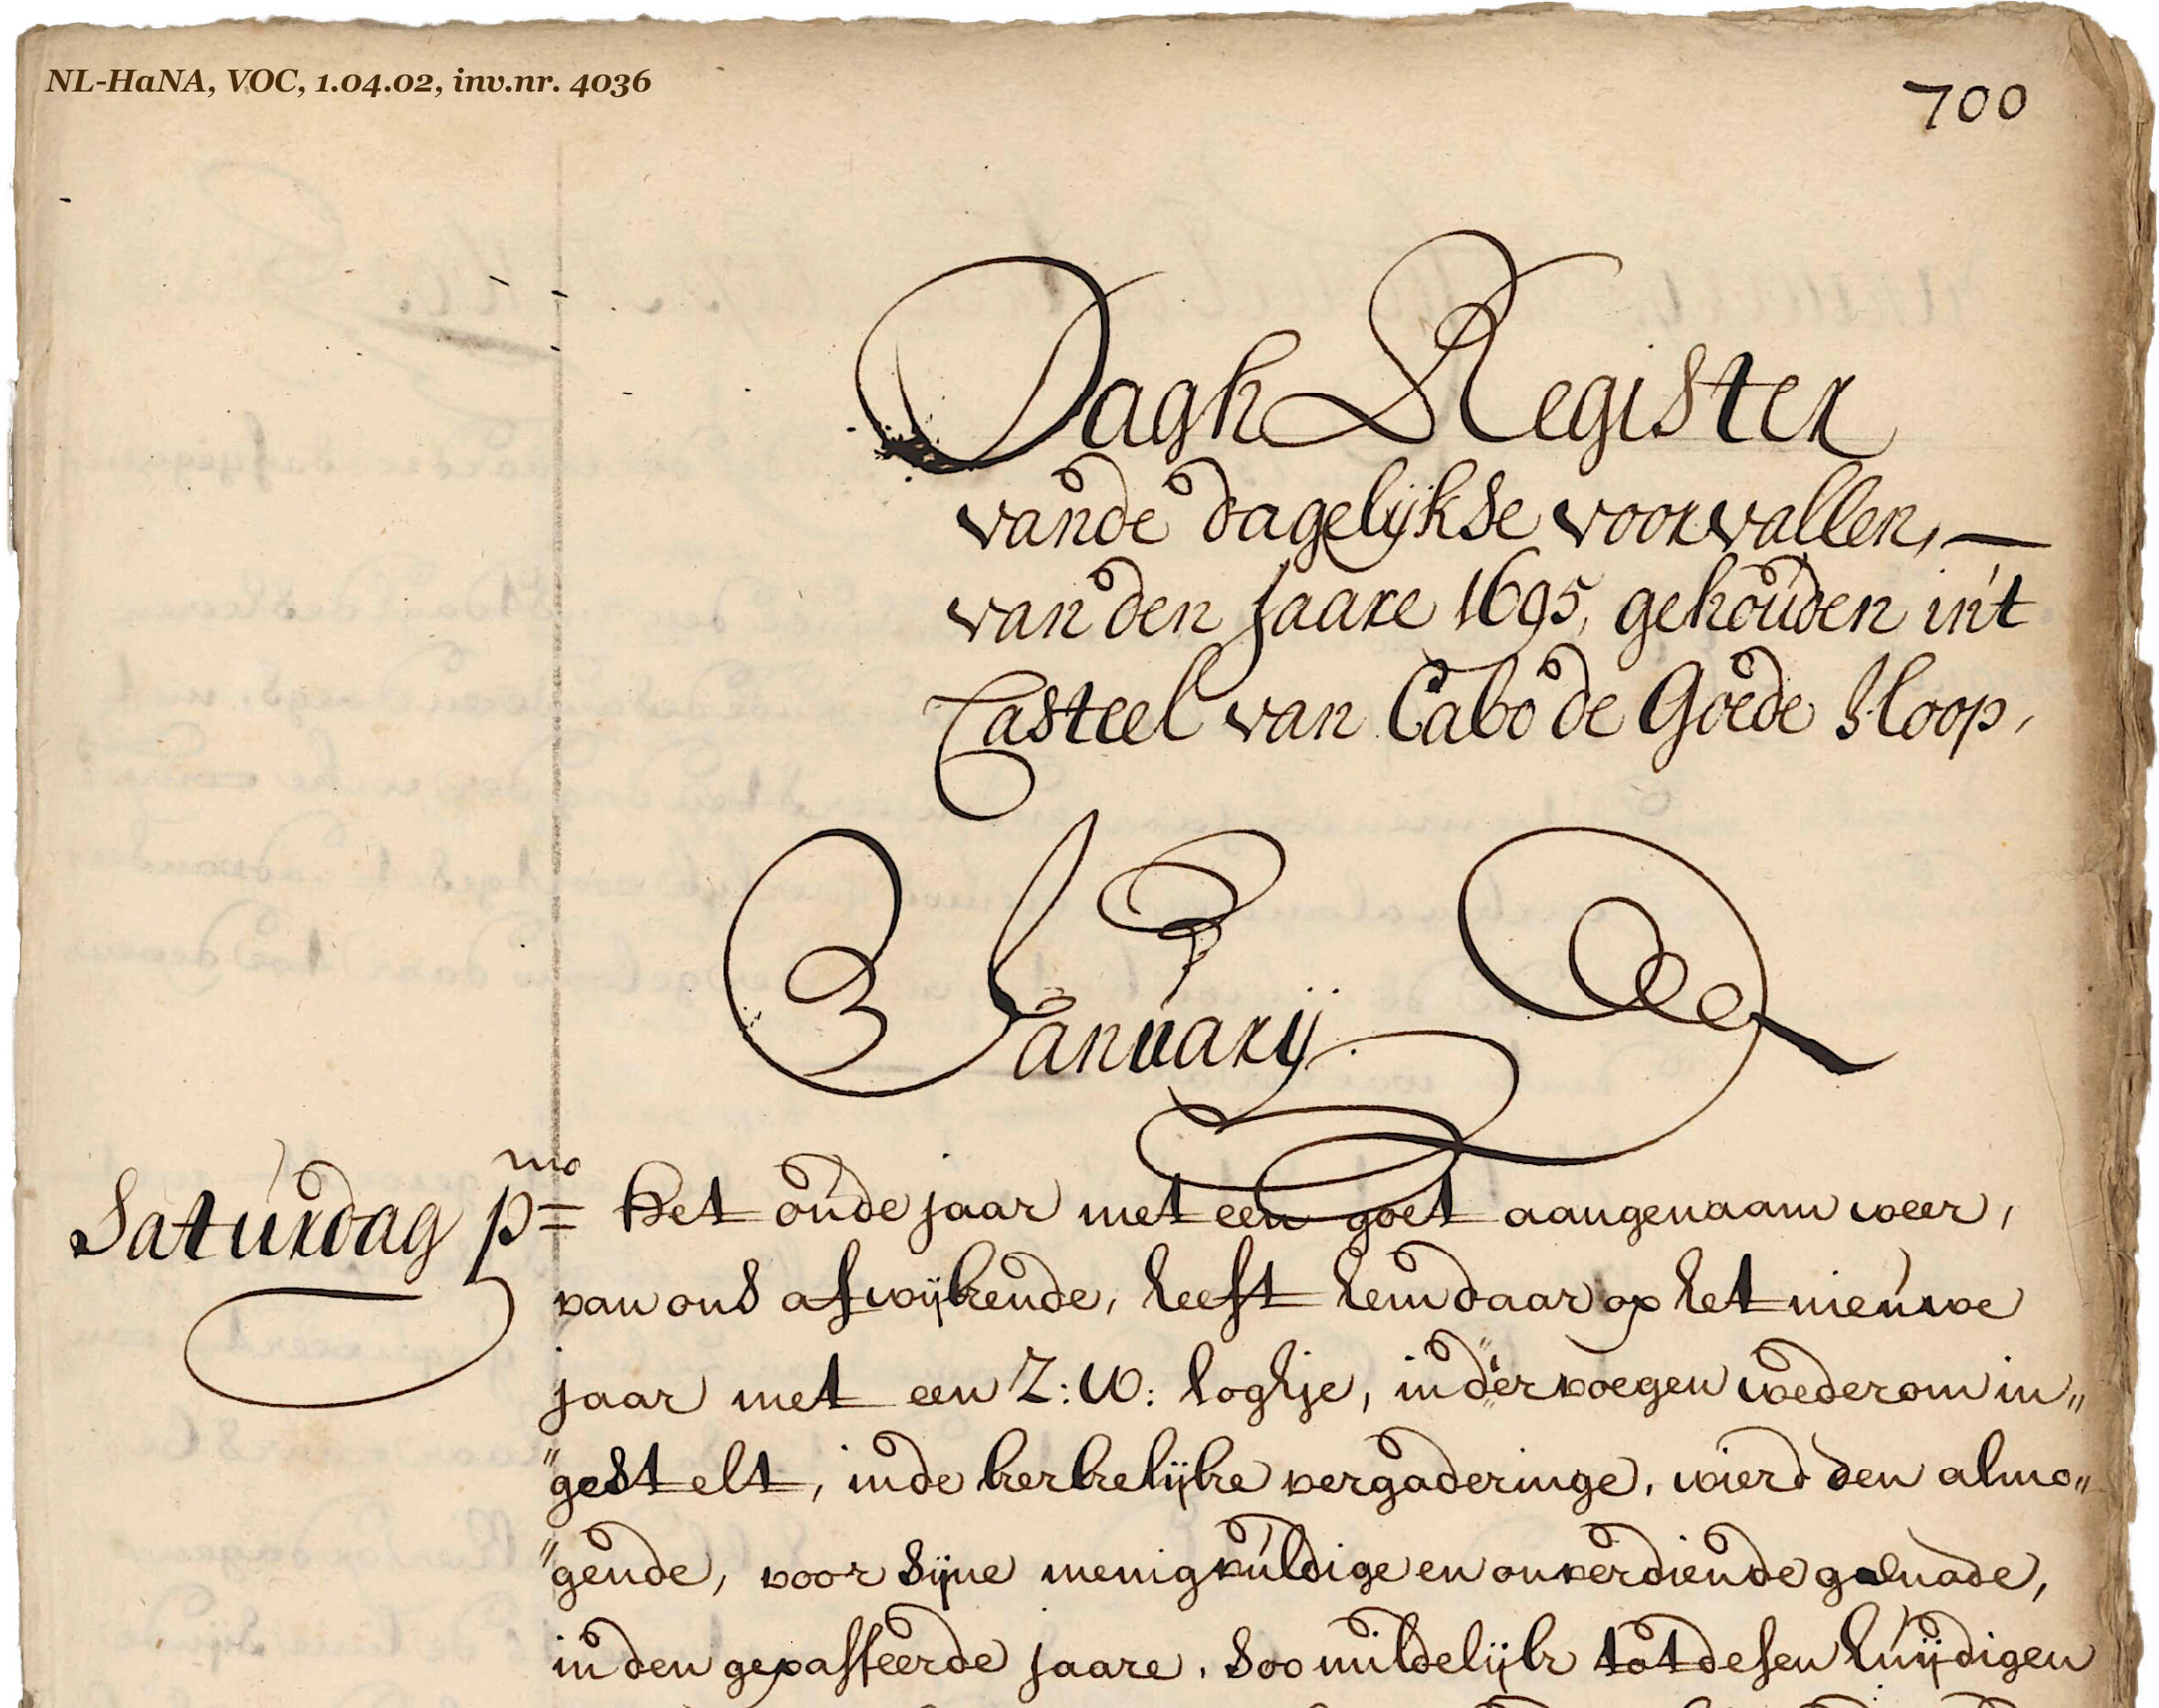 NL-HaNA, VOC, 1.04.02, inv.nr. 4036
700
Dagh Register
vande dagelijkse voorvallen, —
van den Jaare 1695, gehouden in't
Casteel van Cabo de Goede Hoop,
January.
Saturdag pmo = Het oude jaar met een goet aangenaam weer,
van ons afwijkende, heeft hem daar op het nieuwe
jaar met een Z:W: loghje, in dervoegen wederom in„
„gestelt, inde kerkelijke vergaderinge, wierd den almo„
„gende, voor sijne menigvuldige en onverdiende genade,
in den gepasseerde jaare, soo mildelijk tot desen huijdigen